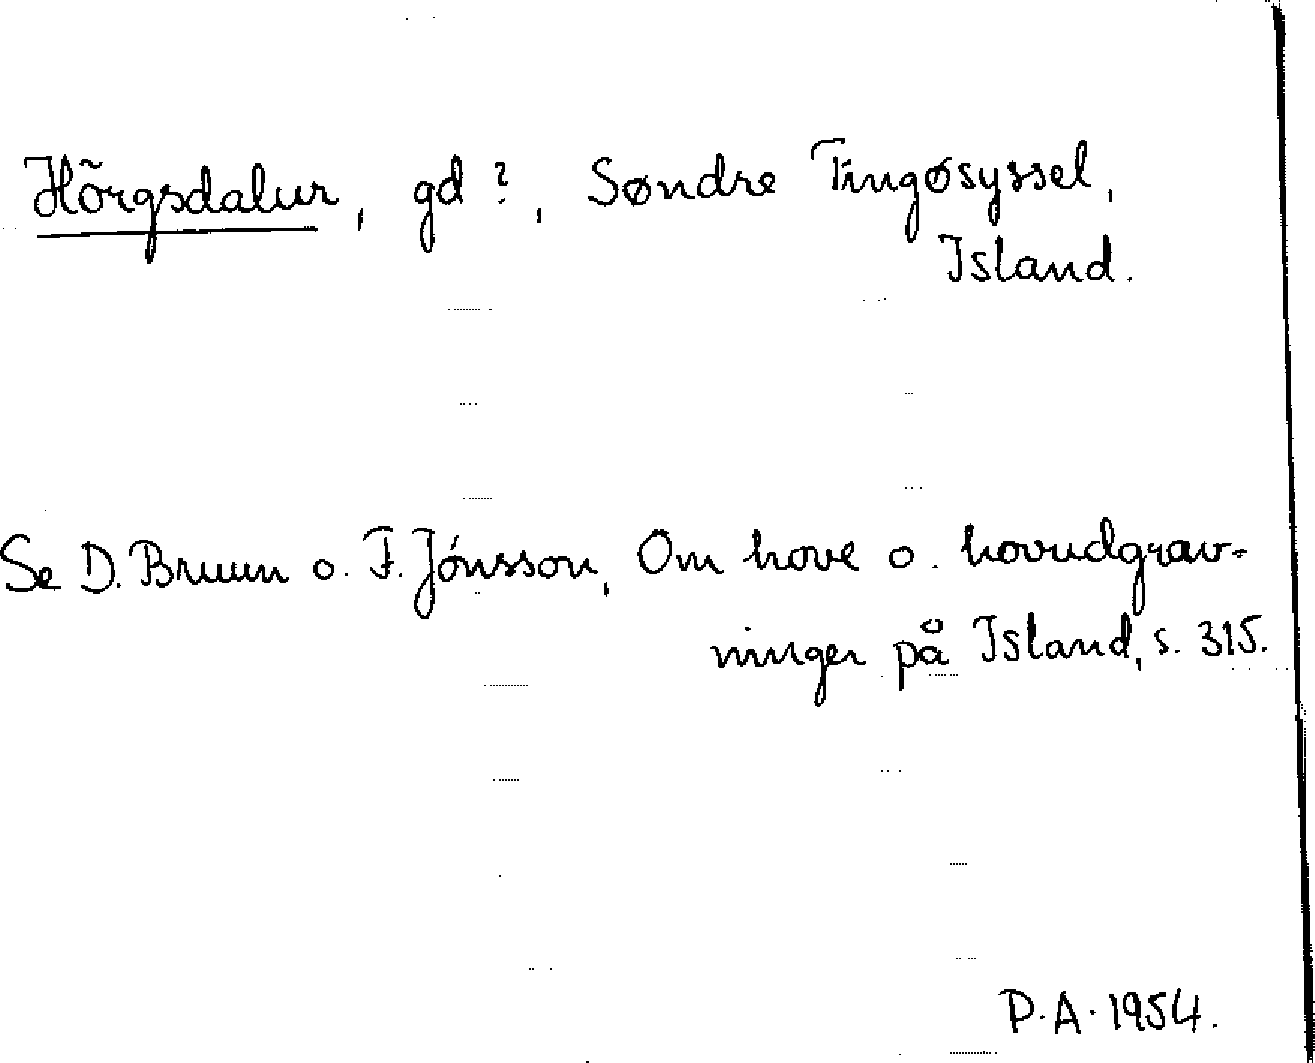 Hörgsdalur, gd ?, Søndre Tingøsyssel,
Island.
Se D. Bruun o. F. Jónsson, Om hove o. hovudgrav-
ninger på Island, s. 315.
P.A. 1954.